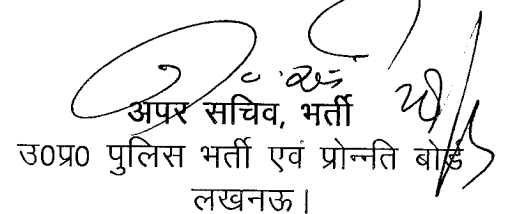 अपर सचिव, भर्ती
उ0प्र0 पुलिस भर्ती एवं प्रोन्नति बोर्ड
लखनऊ।